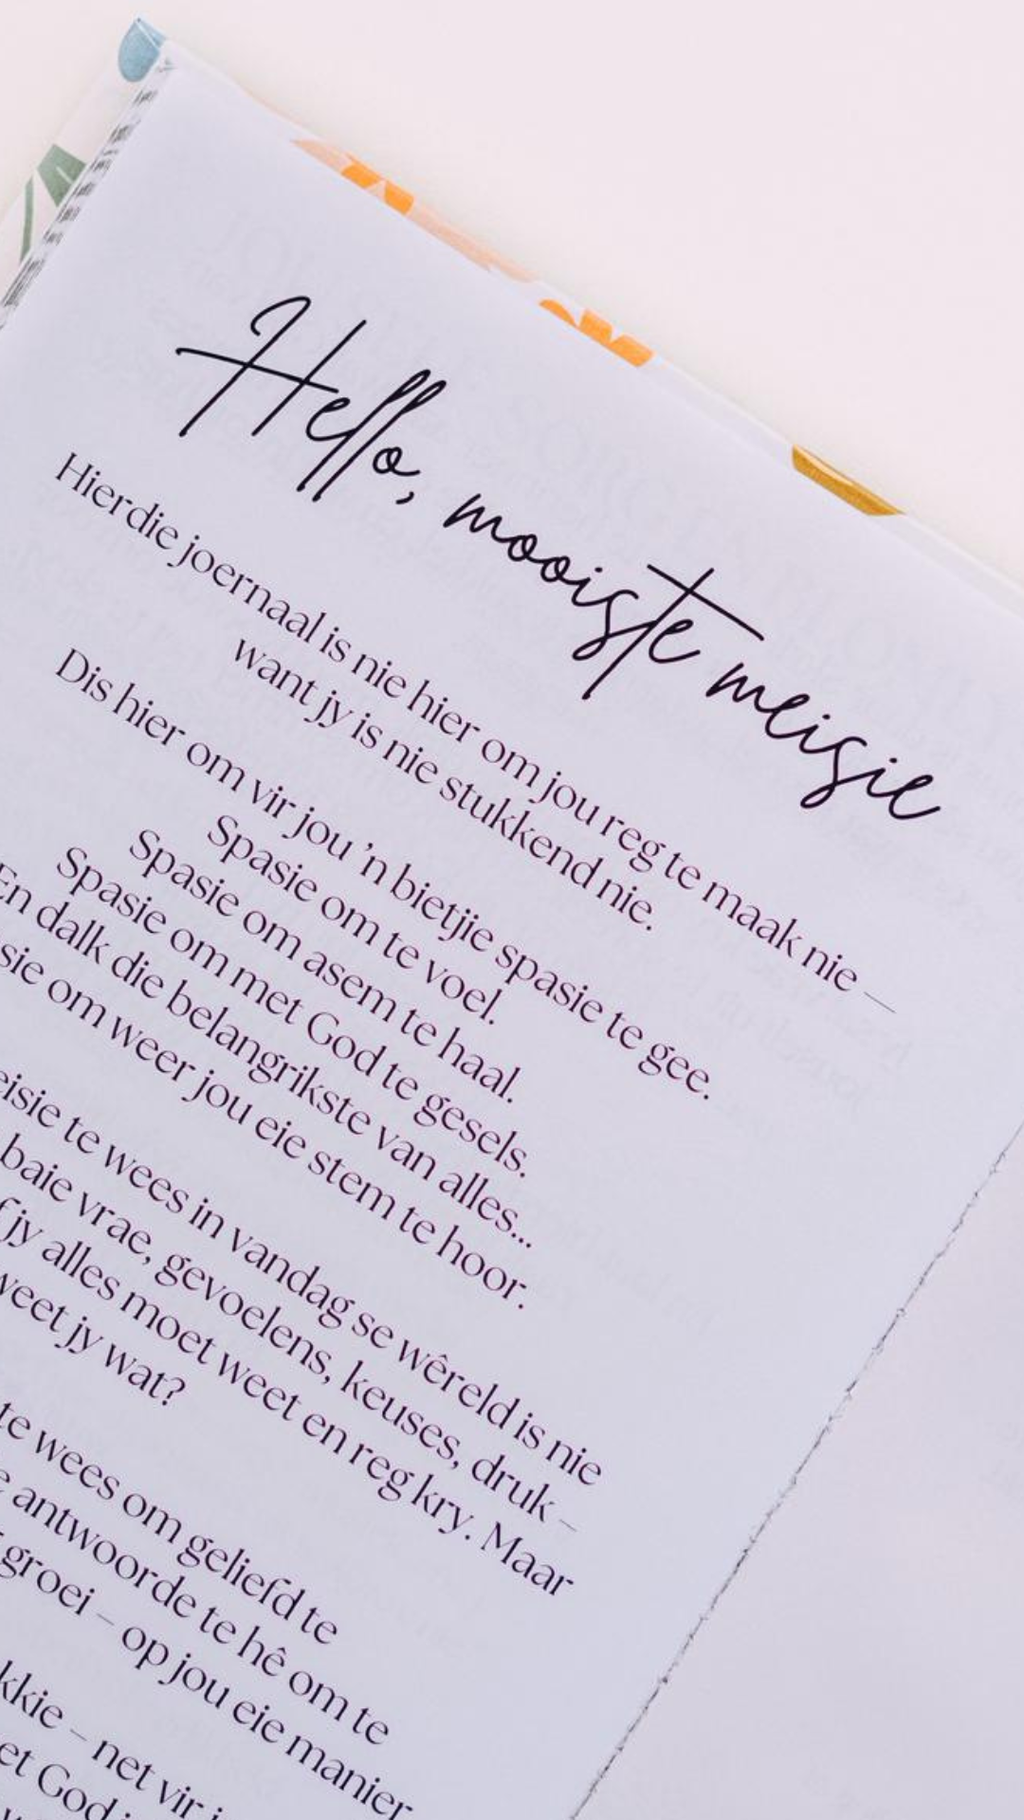 Hello, mooiste meisie
Hierdie joernaal is nie hier om jou reg te maak nie –
want jy is nie stukkend nie.
Dis hier om vir jou 'n bietjie spasie te gee.
Spasie om te voel.
Spasie om asem te haal.
Spasie om met God te gesels.
En dalk die belangrikste van alles...
sie om weer jou eie stem te hoor.
eisie te wees in vandag se wêreld is nie
baie vrae, gevoelens, keuses, druk –
f jy alles moet weet en reg kry. Maar
weet jy wat?
te wees om geliefd te
e antwoorde te hê om te
groei – op jou eie manier
kkie – net vir j
et God i